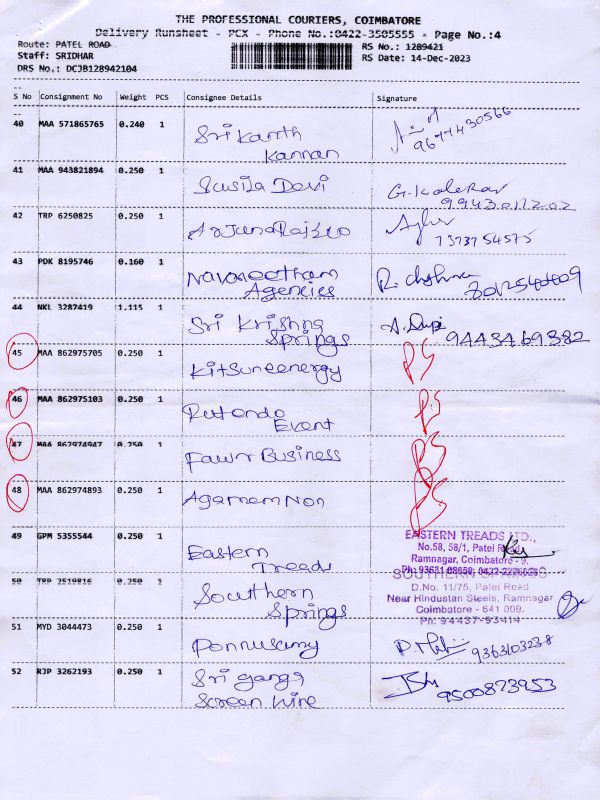 THE PROFESSIONAL COURIERS, COIMBATORE
Delivery Runsheet - PCX - Phone No.:0422-3505555 * Page No.:4
Route: PATEL ROAD RS No.: 1289421
Staff: SRIDHAR RS Date: 14-Dec-2023
DRS No.: DCJB128942104
S No Consignment No Weight PCS Consignee Details Signature
40 MAA 571865765 0.240 1 Srikanth
Kannan 9677430566
41 MAA 943821894 0.250 1 Susila Devi
9943011202
42 TRP 6250825 0.250 1
7373754575
43 PDK 8195746 0.160 1 Navaneetham
Agencies
44 NKL 3287419 1.115 1 Sri Krishna
Springs 9443469382
45 MAA 862975705 0.250 1 Kitsuneenergy PS
46 MAA 862975103 0.250 1
Event PS
47 MAA 862974947 0.250 1 Fawn Business PS
48 MAA 862974893 0.250 1 Agamemnon PS
49 GPM 5355544 0.250 1 Eastern
Treads
EASTERN TREADS LTD.,
No.58, 58/1, Patel Road,
Ramnagar, Coimbatore - 9.
50 TRP 2519816 0.250 1 Southern
Springs
SOUTHERN SPRINGS
D.No. 11/75, Patel Road
Near Hindustan Steels, Ramnagar
Coimbatore - 641 009.
Ph: 94437-93414
51 MYD 3044473 0.250 1 Ponnusamy
9363103238
52 RJP 3262193 0.250 1 Sri ganga
Screen wire 9500873953